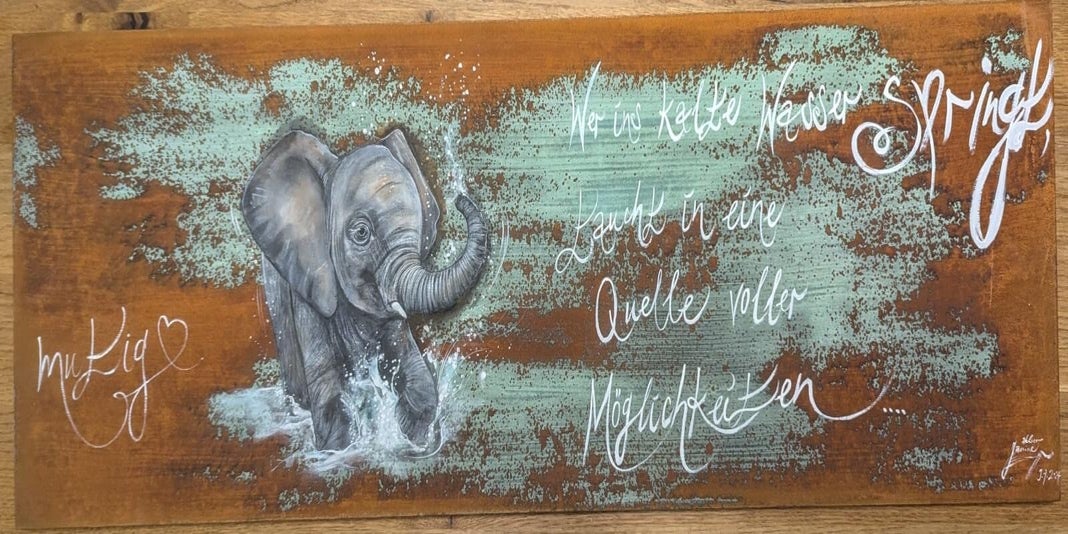 Wer ins kalte Wasser springt,
taucht in eine
Quelle voller
Möglichkeiten ....
mutig